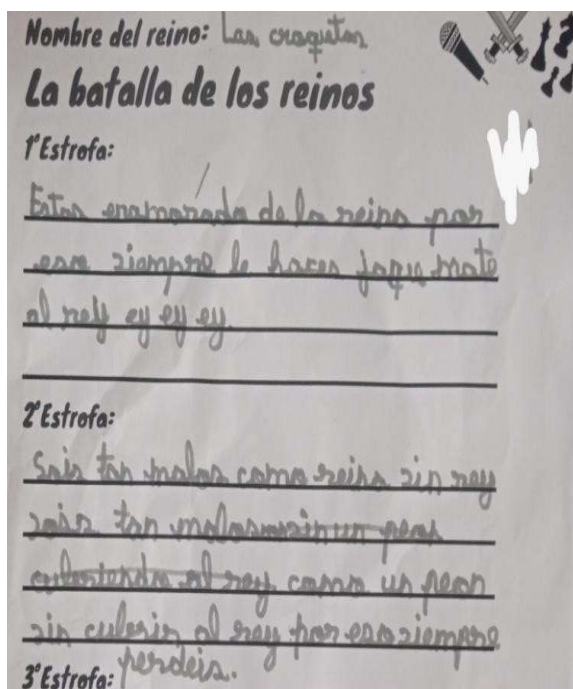 Nombre del reino: Las croquetas
La batalla de los reinos
1ª Estrofa:
Estas enamorado de la reina por
eso siempre le haces jaque mate
al rey ey ey ey.
2ª Estrofa:
Sois tan malos como reina sin rey
sois tan malos sin un peon
al rey como un peon
sin culerir al rey por eso siempre
perdeis.
3ª Estrofa: